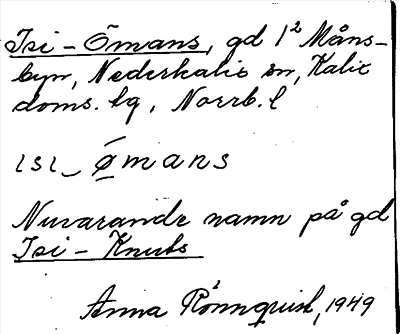 Isi-Ömans, gd 1² Måns-
byn, Nederkalix sn, Kalix
doms. lg, Norrb. l
ɩsɩ‿ømans
Nuvarande namn på gd
Isi-Knuts
Anna Rönnquist, 1949